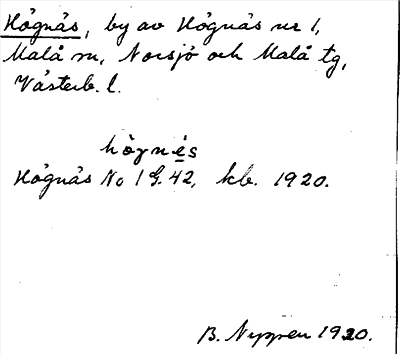 Högnäs, by av Högnäs nr 1,
Malå sn, Norsjö och Malå tg,
Västerb. l.
högnęs
Högnäs No 1 G. 42, kb. 1920.
B. Nyppen 1920.